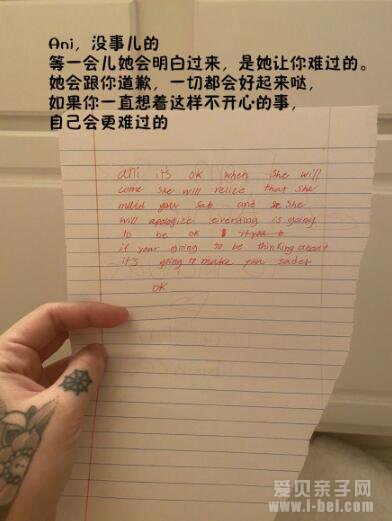 Ani，没事儿的
等一会儿她会明白过来，是她让你难过的。
她会跟你道歉，一切都会好起来哒，
如果你一直想着这样不开心的事，
自己会更难过的
ani it's ok when she will
come she will relize that she
maid you sab and she
will apologize eversting is going
to be ok
if your going to be thinking about
it's going to make you sader
ok
爱贝亲子网
www.i-bei.com